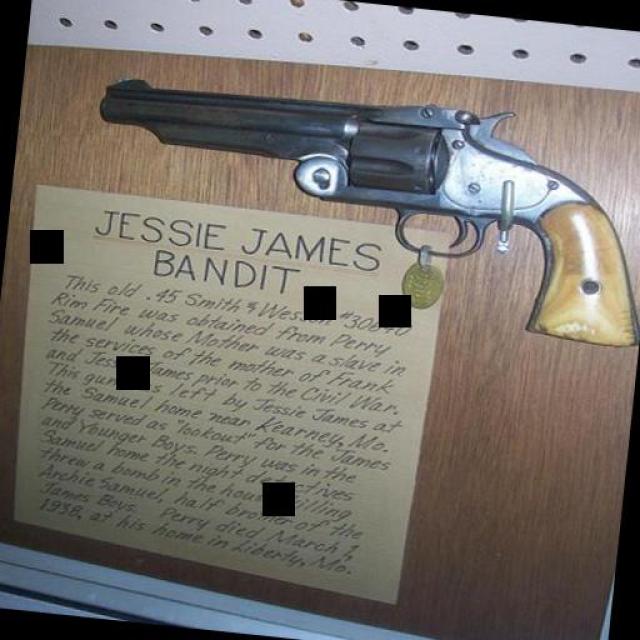 JESSIE JAMES
BANDIT
This old .45 Smith & Wesson
Rim Fire was obtained from Perry
Samuel whose Mother was a slave in
the services of the mother of Frank
and James prior to the Civil War.
This left by Jessie James at
the Samuel home near Kearney, Mo.
Perry served as "lookout" for the James
and Younger Boys. Perry was in the
Samuel home the night
threw a bomb in the killing
Archie Samuel, half brother of the
James Boys. Perry died March 1,
1938, at his home in Liberty, Mo.